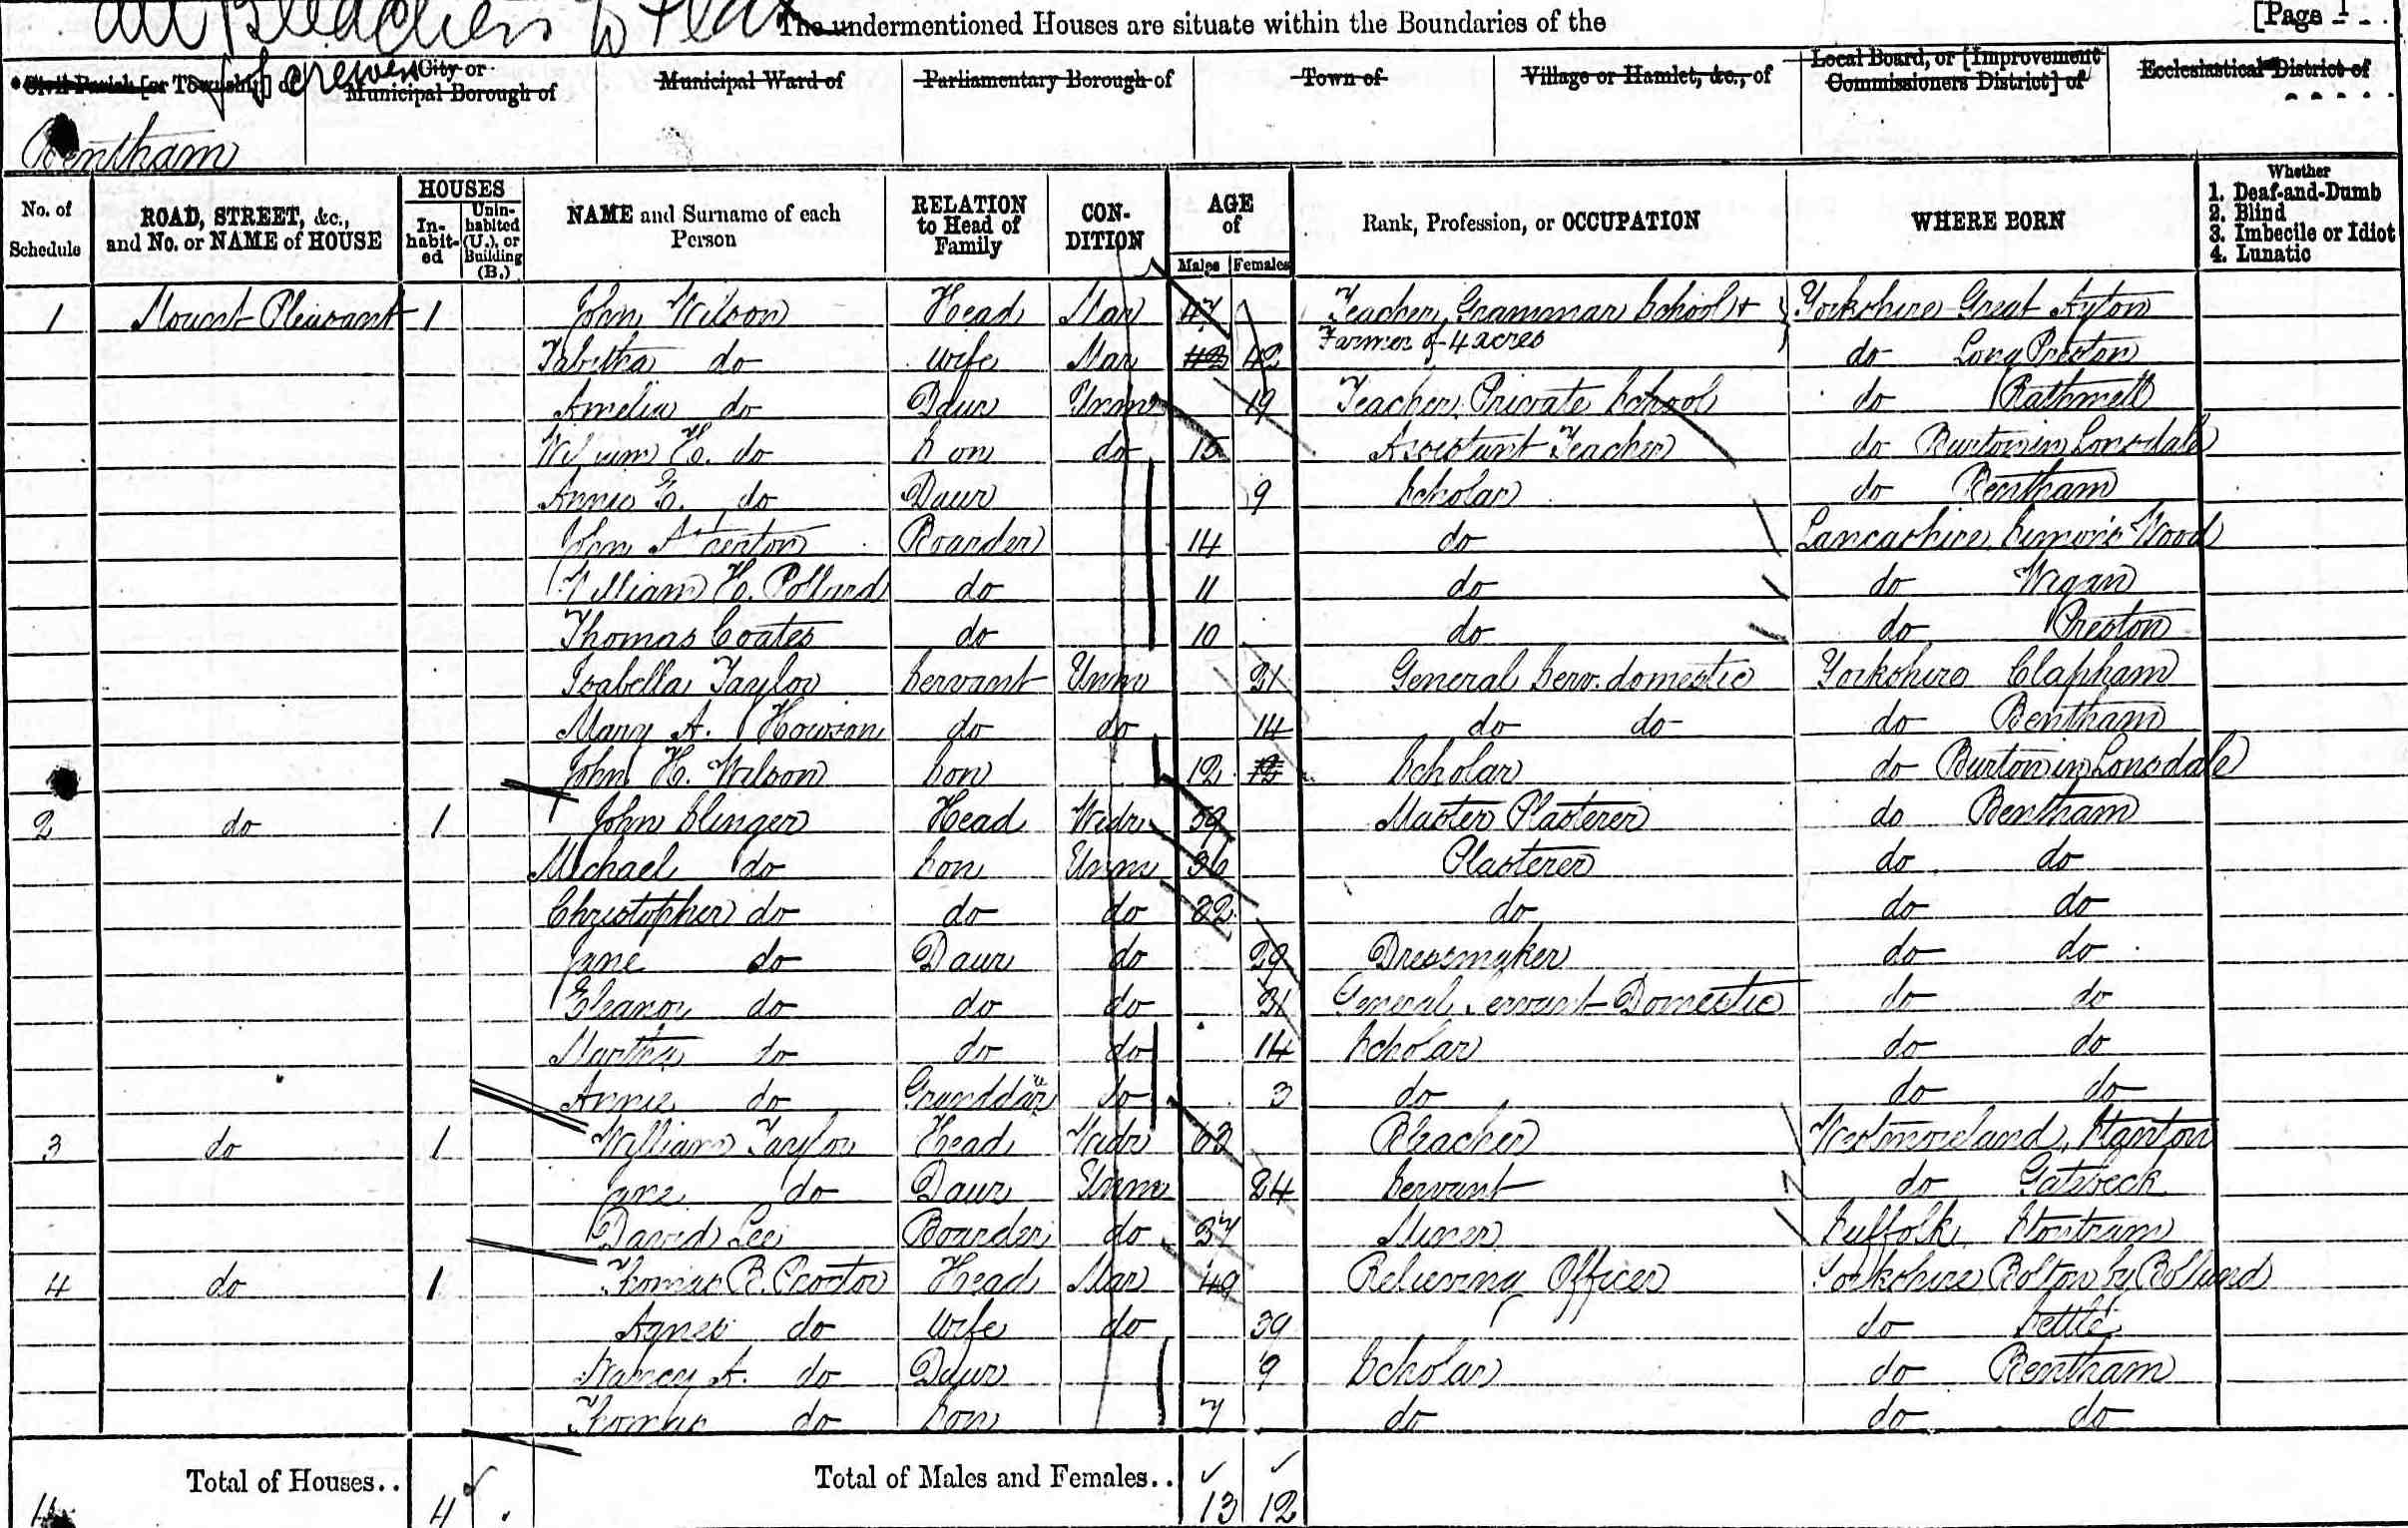 all Bleachers to Flax
The undermentioned Houses are situate within the Boundaries of the [Page 1
Civil Parish [or Township] of City or Municipal Borough of Municipal Ward of Parliamentary Borough of Town of Village or Hamlet, &c., of Local Board, or [Improvement Commissioners District] of Ecclesiastical District of
Bentham
No. of Schedule ROAD, STREET, &c., and No. or NAME of HOUSE HOUSES Inhabited Uninhabited (U.), or Building (B.) NAME and Surname of each Person RELATION to Head of Family CONDITION AGE of Males Females Rank, Profession, or OCCUPATION WHERE BORN Whether 1. Deaf-and-Dumb 2. Blind 3. Imbecile or Idiot 4. Lunatic
1 Mount Pleasant 1 John Wilson Head Mar 47 Teacher, Grammar School + Farmer of 4 acres Yorkshire Great Ayton
Tabitha do Wife Mar 42 do Long Preston
Amelia do Daur Unm 19 Teacher, Private School do Rathmell
William H. do Son do 15 Assistant Teacher do Burton in Lonsdale
Annie E. do Daur 9 Scholar do Bentham
John Boarder 14 do Lancashire Wood
William H. Pollard do 11 do do Wigan
Thomas Coates do 10 do do Preston
Isabella Taylor Servant Unm 21 General Serv. domestic Yorkshire Clapham
Mary A. Howson do do 14 do do do Bentham
John H. Wilson Son 12 Scholar do Burton in Lonsdale
2 do 1 John Slinger Head Widr 59 Master Plasterer do Bentham
Michael do Son Unm Plasterer do do
Christopher do do do 22 do do do
Jane do Daur do 29 Dressmaker do do
Eleanor do do do General Servant Domestic do do
Martha do do do 14 Scholar do do
Annie do Granddaur do 3 do do do
3 do 1 William Taylor Head Widr 62 Bleacher Westmoreland,
Jane do Daur Unm 24 Servant do Gatebeck
David Lee Boarder do 37 Miner Suffolk
4 do 1 Thomas R. Proctor Head Mar 49 Relieving Officer Yorkshire Bolton by Bolland
Agnes do Wife do 39 do Settle
Nancy A. do Daur 9 Scholar do Bentham
Thomas do Son 7 do do do
4 Total of Houses.. 4 Total of Males and Females.. 13 12